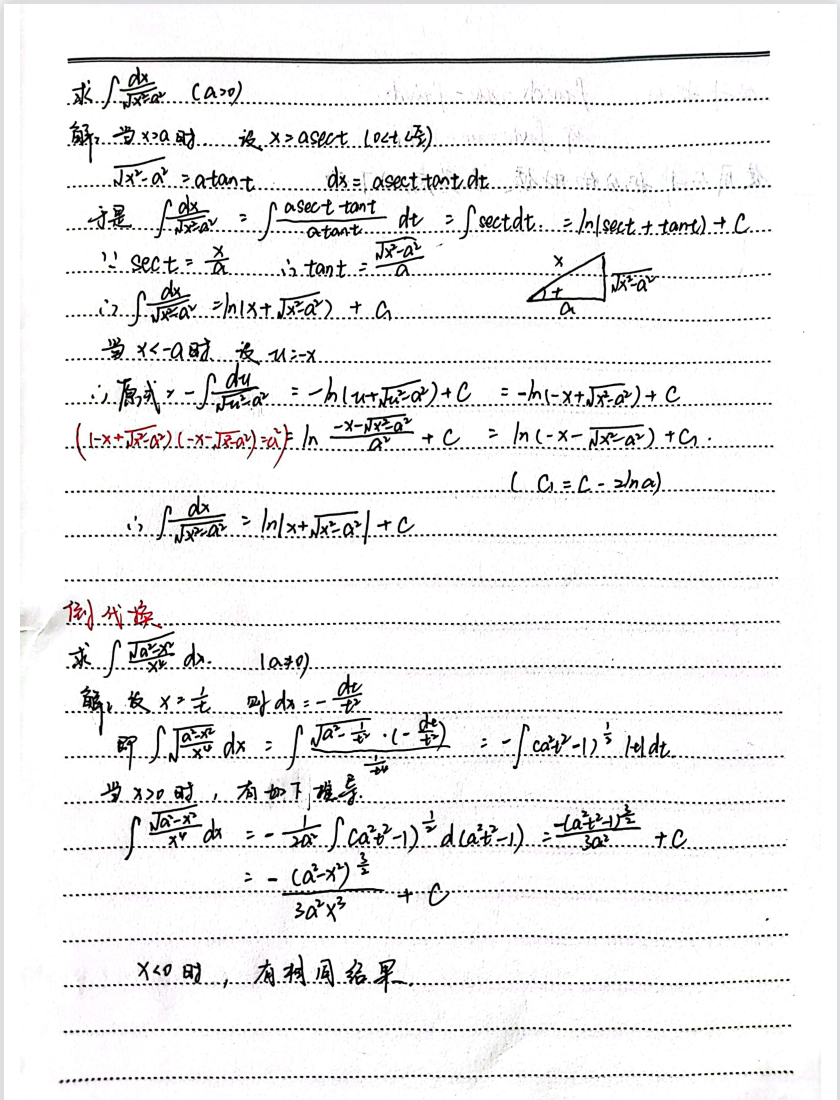 求 ∫ dx/√(x²-a²) (a>0)
解: 当 x>a 时. 设 x=asect (0<t<π/2)
√(x²-a²) = atant dx = asect tant dt
于是 ∫ dx/√(x²-a²) = ∫ (asect·tant)/(atant) dt = ∫ sectdt. = ln(sect + tant) + C
∵ sect = x/a ∴ tant = √(x²-a²)/a
x √(x²-a²) t a
∴ ∫ dx/√(x²-a²) = ln(x+√(x²-a²)) + C₁
当 x<-a 时 设 u=-x
∴ 原式 = -∫ du/√(u²-a²) = -ln(u+√(u²-a²))+C = -ln(-x+√(x²-a²))+C
((-x+√(x²-a²))(-x-√(x²-a²))=a²) = ln (-x-√(x²-a²))/a² + C = ln(-x-√(x²-a²)) + C₁.
(C₁ = C - 2lna)
∴ ∫ dx/√(x²-a²) = ln|x+√(x²-a²)| + C
倒代换
求 ∫ √(a²-x²)/x⁴ dx. (a≠0)
解: 设 x = 1/t 则 dx = -dt/t²
即 ∫ √(a²-x²)/x⁴ dx = ∫ (√(a²-1/t²)·(-dt/t²))/(1/t⁴) = -∫(a²t²-1)^(1/2) |t|dt.
当 x>0 时, 有如下推导.
∫ √(a²-x²)/x⁴ dx = -1/(2a²) ∫(a²t²-1)^(1/2) d(a²t²-1) = -(a²t²-1)^(3/2)/(3a²) + C
= -(a²-x²)^(3/2)/(3a²x³) + C
x<0 时, 有相同结果.